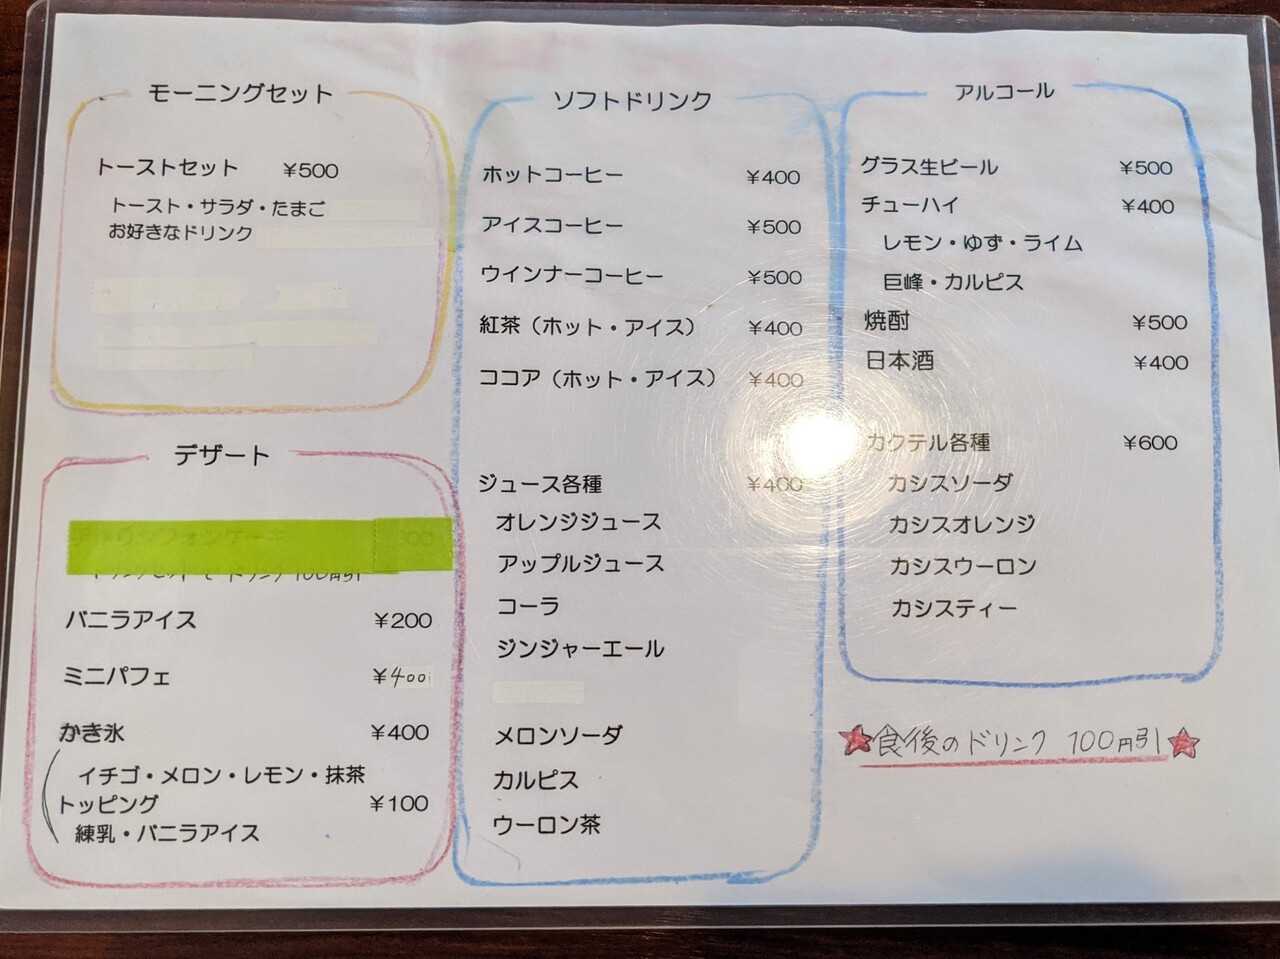 モーニングセット
トーストセット ¥500
トースト・サラダ・たまご
お好きなドリンク
デザート
手作りシフォンケーキ
バニラアイス ¥200
ミニパフェ ¥400
かき氷 ¥400
イチゴ・メロン・レモン・抹茶
トッピング ¥100
練乳・バニラアイス
ソフトドリンク
ホットコーヒー ¥400
アイスコーヒー ¥500
ウインナーコーヒー ¥500
紅茶（ホット・アイス） ¥400
ココア（ホット・アイス） ¥400
ジュース各種 ¥400
オレンジジュース
アップルジュース
コーラ
ジンジャーエール
メロンソーダ
カルピス
ウーロン茶
アルコール
グラス生ビール ¥500
チューハイ ¥400
レモン・ゆず・ライム
巨峰・カルピス
焼酎 ¥500
日本酒 ¥400
カクテル各種 ¥600
カシスソーダ
カシスオレンジ
カシスウーロン
カシスティー
食後のドリンク 100円引